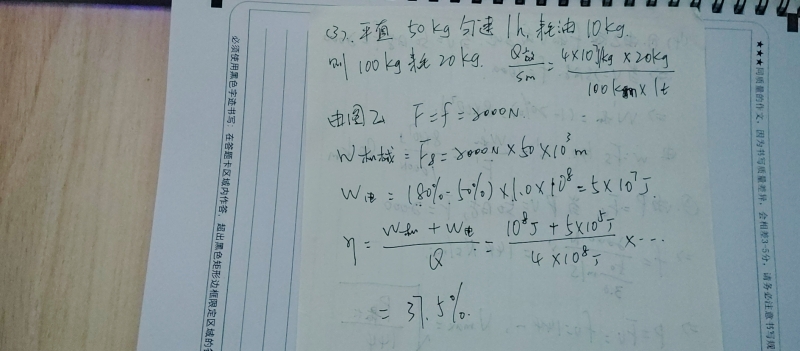 (3). 平直 50kg 匀速 1h, 耗油 10kg.
则 100kg 耗 20kg. Q放/sm = 4×10⁷J/kg × 20kg / 100km × 1t
由图乙 F=f=2000N
W机械 = Fs = 2000N × 50×10³m
W电 = (80%-50%) × 1.0×10⁸ = 5×10⁷J.
η = W机+W电 / Q = 10⁸J + 5×10⁵J / 4×10⁸J × …
= 37.5%.
必须使用黑色字迹书写,在答题卡区域内作答,超出黑色矩形边框限定区域的
★★★同质量的作文,因为书写质量差异,会相差3-5分,请务必注意书写规